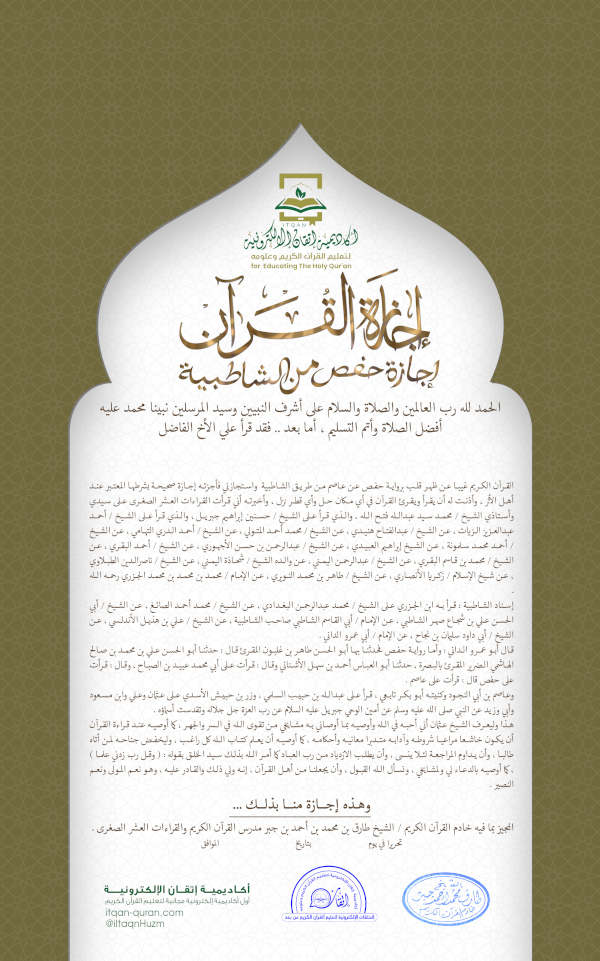 ITQAN
أكاديمية إتقان الإلكترونية
لتعليم القرآن الكريم وعلومه
for Educating The Holy Qur'an
إجازة القرآن
إجازة حفص من الشاطبية
الحمد لله رب العالمين والصلاة والسلام على أشرف النبيين وسيد المرسلين نبينا محمد عليه
أفضل الصلاة وأتم التسليم ، أما بعد .. فقد قرأ علي الأخ الفاضل
القرآن الكريم غيبا عن ظهر قلب برواية حفص عن عاصم من طريق الشاطبية واستجازني فأجزته إجازة صحيحة بشرطها المعتبر عند
أهل الأثر ، وأذنت له أن يقرأ ويقرئ القرآن في أي مكان حل وأي قطر نزل ، وأخبرته أني قرأت القراءات العشر الصغرى على سيدي
وأستاذي الشيخ / محمد سيد عبدالله فتح الله ، والذي قرأ على الشيخ / حسنين إبراهيم جبريل ، والذي قرأ على الشيخ / أحمد
عبدالعزيز الزيات ، عن الشيخ / عبدالفتاح هنيدي ، عن الشيخ / محمد أحمد المتولي ، عن الشيخ / أحمد الدري التهامي ، عن الشيخ
/ أحمد محمد سلمونة ، عن الشيخ إبراهيم العبيدي ، عن الشيخ / عبدالرحمن بن حسن الأجهوري ، عن الشيخ / أحمد البقري ، عن
الشيخ / محمد بن قاسم البقري ، عن الشيخ / عبدالرحمن اليمني ، عن والده الشيخ / شحاذة اليمني ، عن الشيخ / ناصرالدين الطبلاوي
، عن شيخ الإسلام / زكريا الأنصاري ، عن الشيخ / طاهر بن محمد النويري ، عن الإمام / محمد بن محمد بن محمد الجزري رحمه الله
.
إسناد الشاطبية : قرأ به ابن الجزري على الشيخ / محمد عبدالرحمن البغدادي ، عن الشيخ / محمد أحمد الصائغ ، عن الشيخ / أبي
الحسن علي بن شجاع صهر الشاطبي ، عن الإمام / أبي القاسم الشاطبي صاحب الشاطبية ، عن الشيخ / علي بن هذيل الأندلسي ، عن
الشيخ / أبي داود سليمان بن نجاح ، عن الإمام / أبي عمرو الداني .
قال أبو عمرو الداني : وأما رواية حفص فحدثنا بها أبو الحسن طاهر بن غلبون المقرئ قال : حدثنا أبو الحسن علي بن محمد بن صالح
الهاشمي الضرير المقرئ بالبصرة ، حدثنا أبو العباس أحمد بن سهل الأشناني وقال : قرأت على أبي محمد عبيد بن الصباح ، وقال : قرأت
على حفص قال : قرأت على عاصم .
وعاصم بن أبي النجود وكنيته أبو بكر تابعي ، قرأ على عبدالله بن حبيب السلمي ، وزر بن حبيش الأسدي على عثمان وعلي وابن مسعود
وأبي وزيد عن النبي صلى الله عليه وسلم عن أمين الوحي جبريل عليه السلام عن رب العزة جل جلاله وتقدست أسماؤه .
هذا وليعرف الشيخ عثمان أني أحبه في الله وأوصيه بما أوصاني به مشايخي من تقوى الله في السر والجهر ، كما أوصيه عند قراءة القرآن
أن يكون خاشعا مراعيا شروطه وآدابه متدبرا معانيه وأحكامه ، كما أوصيه أن يعلم كتاب الله كل راغب ، وليخفض جناحه لمن أتاه
طالبا ، وأن يداوم المراجعة لئلا ينسى ، وأن يطلب الازدياد من رب العباد كما أمر الله بذلك سيد الخلق بقوله : ( وقل رب زدني علما )
، كما أوصيه بالدعاء لي ولمشايخي ، ونسأل الله القبول ، وأن يجعلنا من أهل القرآن ، إنه ولي ذلك والقادر عليه ، وهو نعم المولى ونعم
النصير .
وهذه إجازة منا بذلك ...
المجيز بما فيه خادم القرآن الكريم / الشيخ طارق بن محمد بن أحمد بن جبر مدرس القرآن الكريم والقراءات العشر الصغرى .
تحريرا في يوم بتاريخ الموافق
أكاديمية إتقان الإلكترونية
أول أكاديمية إلكترونية مجانية لتعليم القرآن الكريم
itqan-quran.com
@iItaqnHuzm
إتقان
الحلقات الإلكترونية لتعليم القرآن الكريم عن بعد